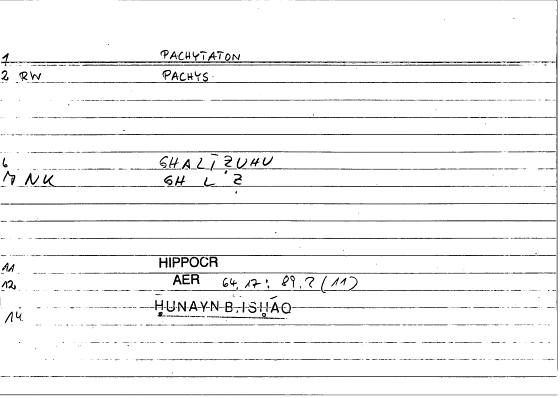 1 PACHYTATON
2 RW PACHYS
6 GHALĪẒUHU
7 NK GH L Ẓ
11 HIPPOCR
12 AER 64,17: 89.2 (11)
14 ḤUNAYN B. ISḤĀQ